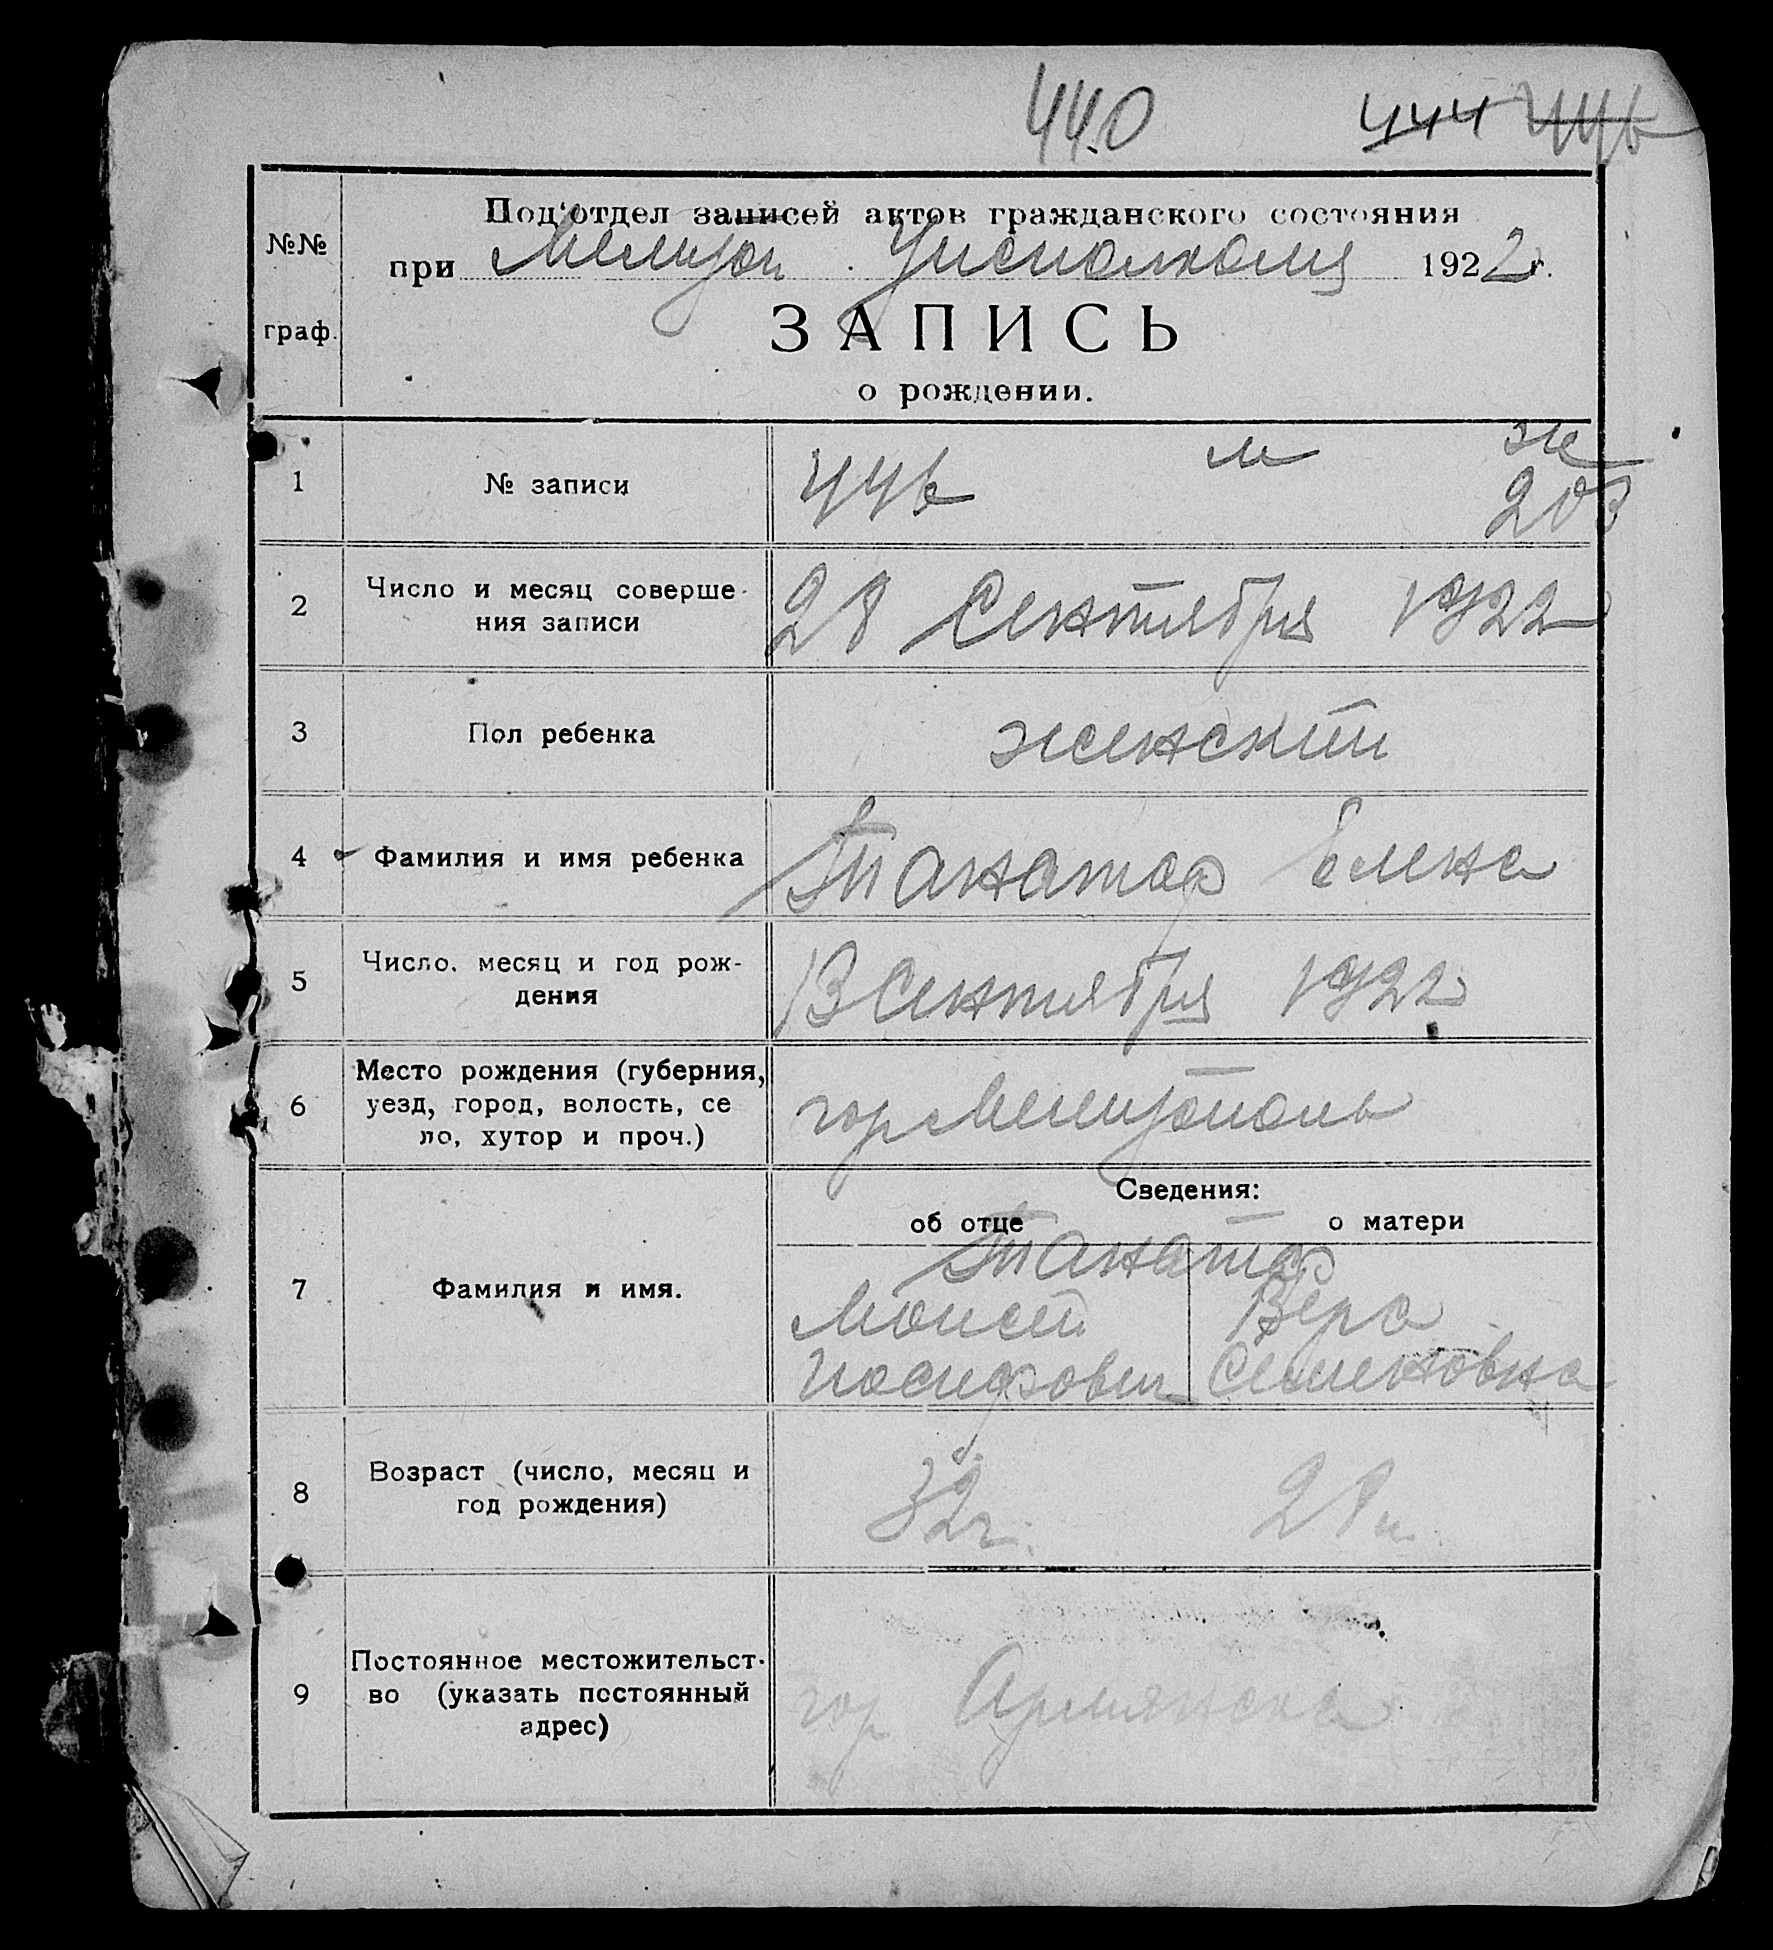 440 444 446
№№
граф.
Под'отдел записей актов гражданского состояния
при Мелитоп. Уисполкома 1922 г.
ЗАПИСЬ
о рождении.
1 № записи 446 м ж
203
2 Число и месяц соверше-
ния записи 28 Сентября 1922
3 Пол ребенка женский
4 Фамилия и имя ребенка Танатар Елена
5 Число, месяц и год рож-
дения 13 Сентября 1922
6 Место рождения (губерния,
уезд, город, волость, се
ло, хутор и проч.) гор Мелитополь
Сведения:
об отце о матери
7 Фамилия и имя. Танатар
Моисей Вера
Иосифович Семеновна
8 Возраст (число, месяц и
год рождения) 32 г. 28 л.
9 Постоянное местожительст-
во (указать постоянный
адрес) гор Армянск